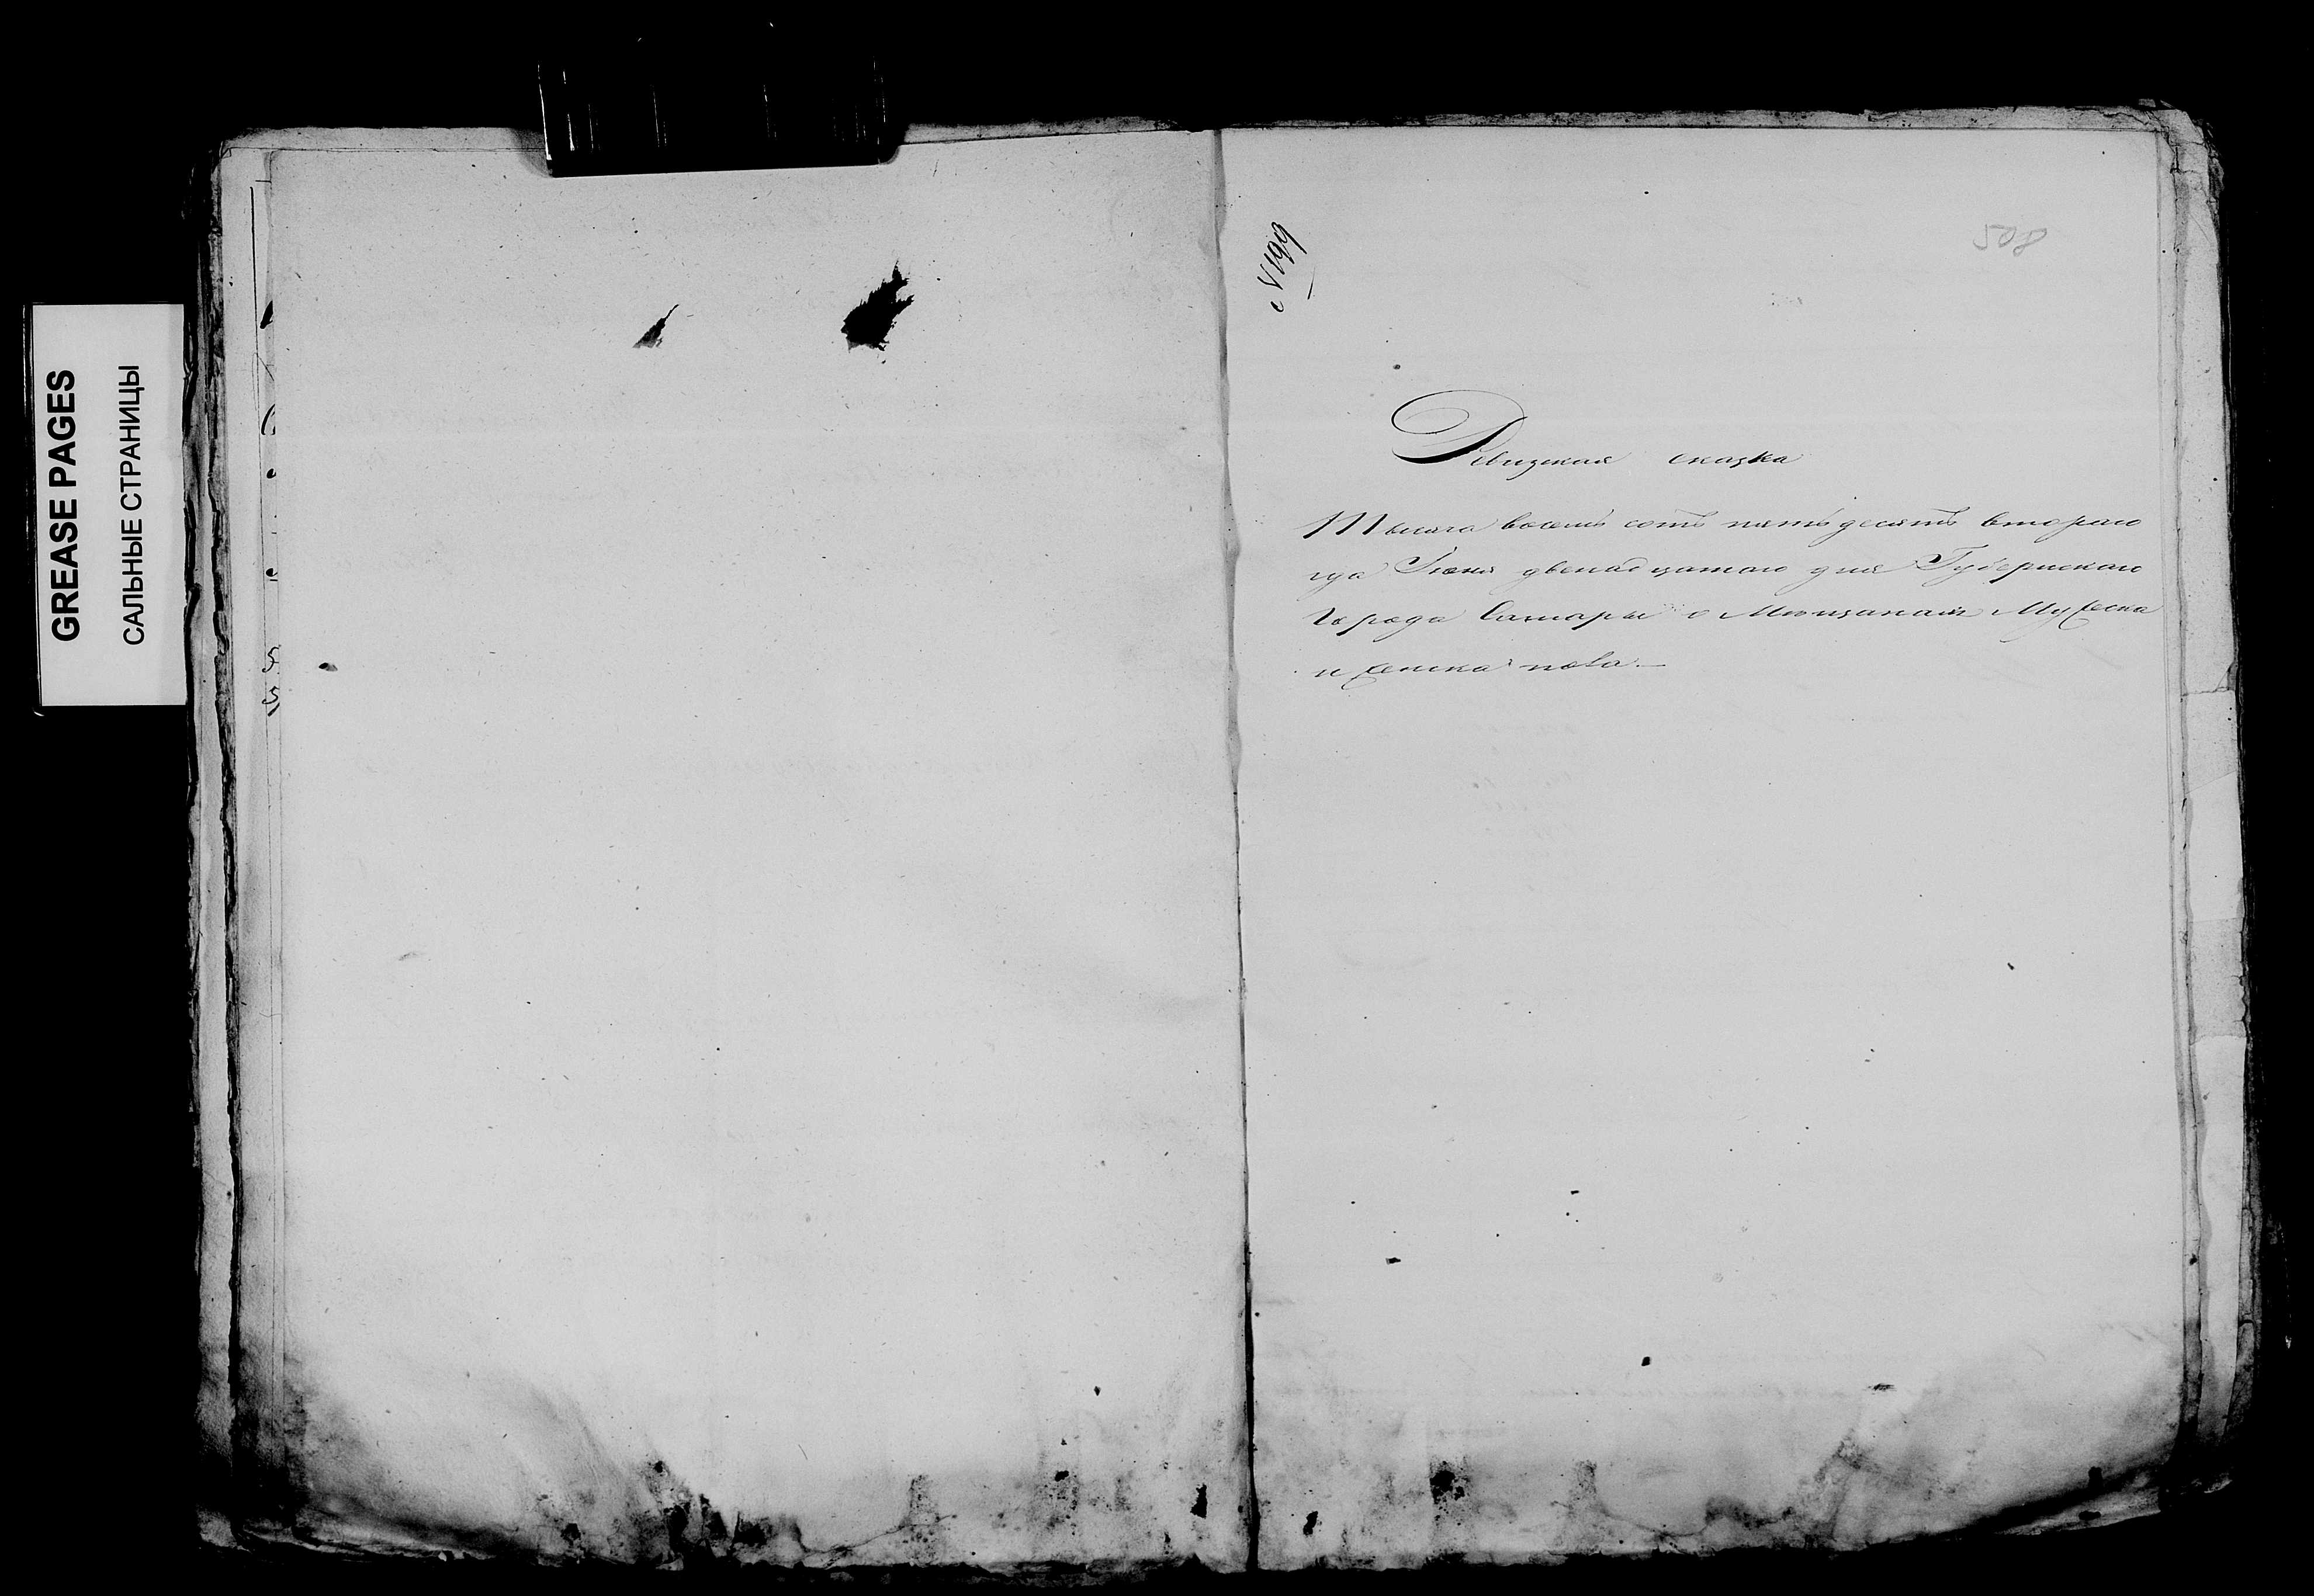 GREASE PAGES
САЛЬНЫЕ СТРАНИЦЫ
№199
508
Ревизская сказка
Тысяча восемь сотъ пятьдесятъ втораго
года Іюня двенадцатаго дня Губернскаго
города Самары о Мещанахъ Мужеска
и женска пола.—